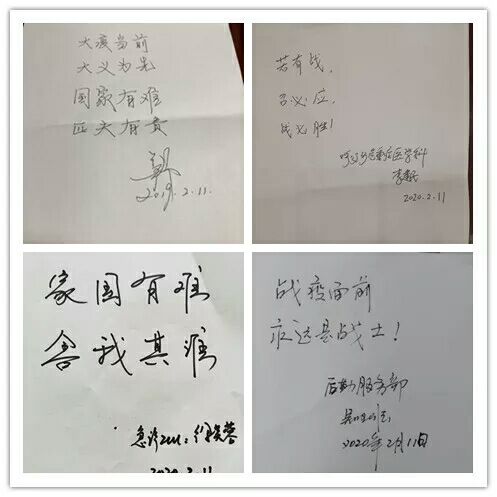 大疫当前
大义为先
国家有难
匹夫有责
2019.2.11.
若有战,
召必应,
战必胜!
重症医学科
2020.2.11
家国有难
舍我其谁
急诊ICU:
2020.2.11
战疫面前
永远是战士!
后勤服务部
2020年2月11日